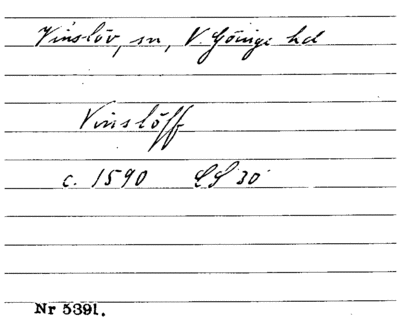 Vinslöv, sn, V. Göinge hd
Vinslöff
c. 1590 LS 30
Nr 5391.